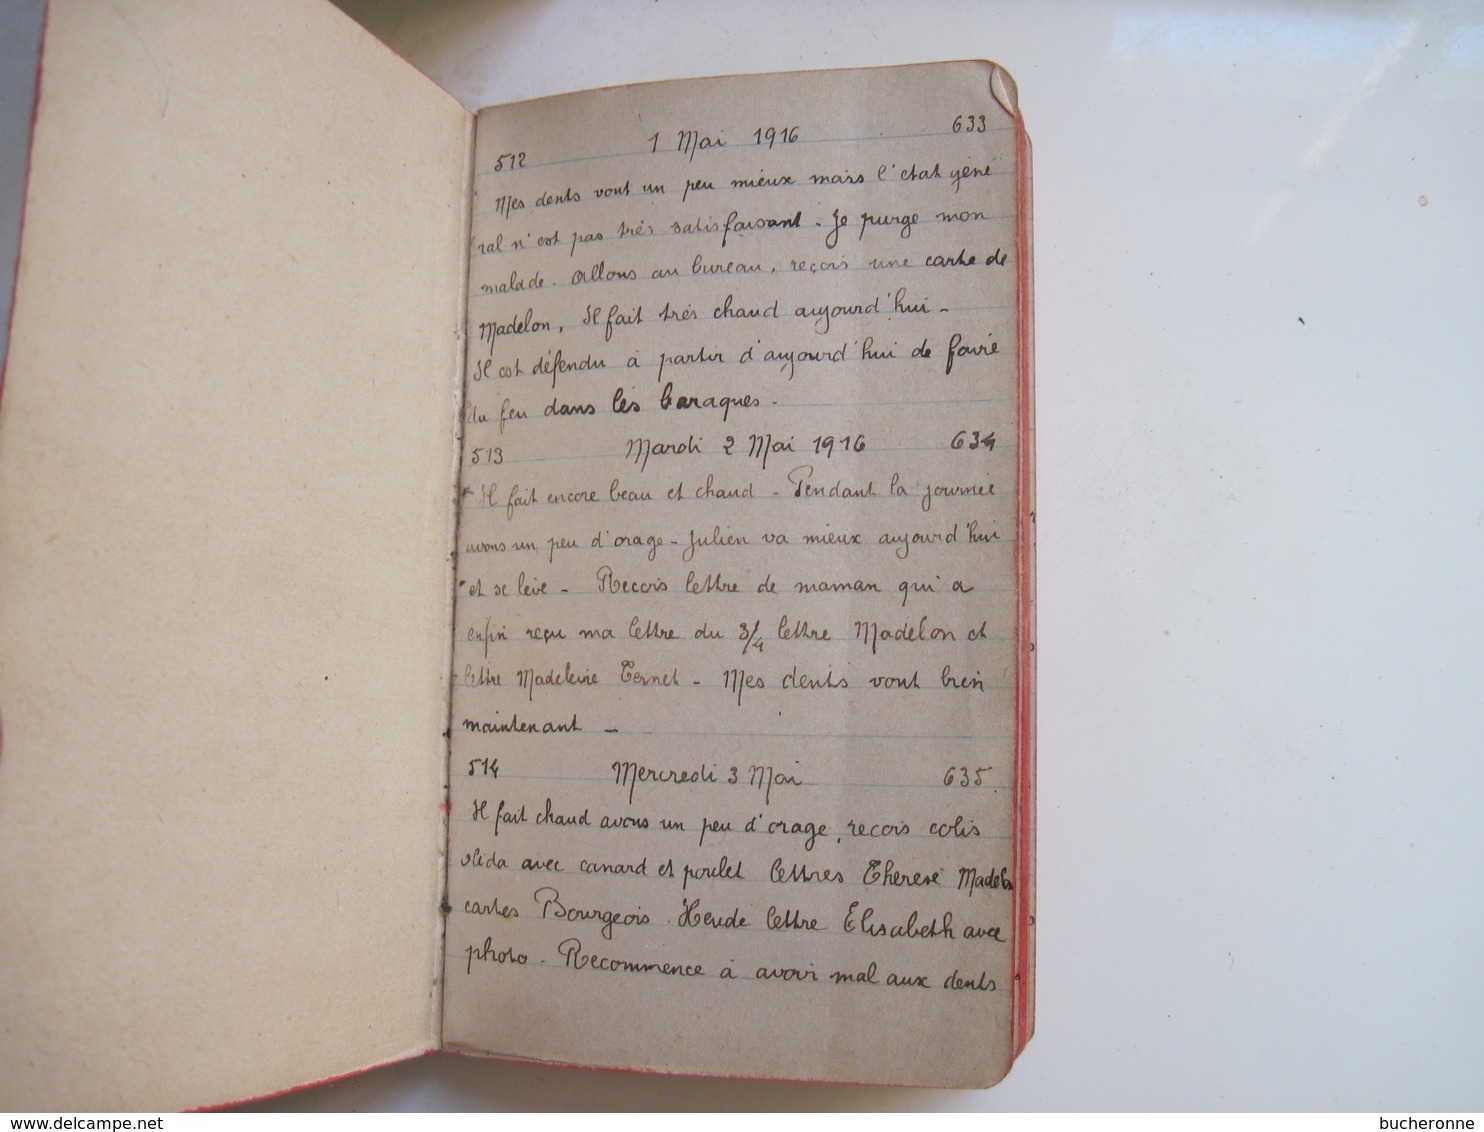 512 1 Mai 1916 633
Mes dents vont un peu mieux mais l'état géné
ral n'est pas très satisfaisant. Je purge mon
malade. Allons au bureau, reçois une carte de
Madelon, Il fait très chaud aujourd'hui -
Il est défendu à partir d'aujourd'hui de faire
du feu dans les baraques -
513 Mardi 2 Mai 1916 634
Il fait encore beau et chaud - Pendant la journée
avons un peu d'orage - Julien va mieux aujourd'hui
et se lève - Recois lettre de maman qui a
enfin reçu ma lettre du 3/4 lettre Madelon et
lettre Madeleine Ternet - Mes dents vont bien
maintenant -
514 Mercredi 3 Mai 635
Il fait chaud avons un peu d'orage, recois colis
olida avec canard et poulet lettres Therese Madelon
cartes Bourgeois lettre Elisabeth avec
photo - Recommence à avoir mal aux dents
bucheronne
www.delcampe.net